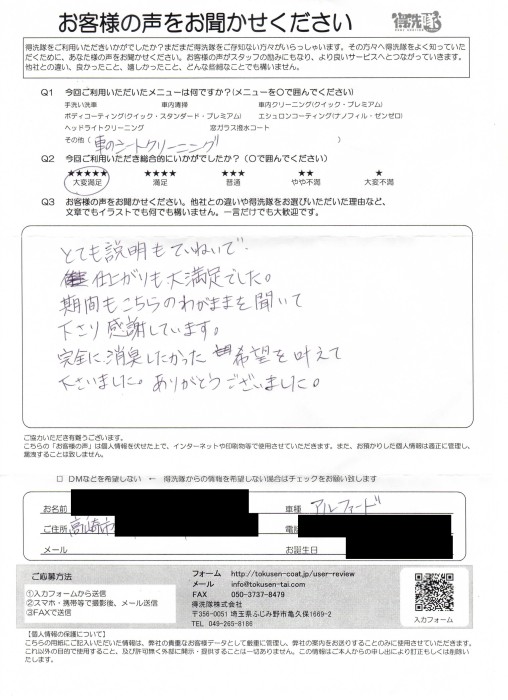 お客様の声をお聞かせください
得洗隊
得洗隊をご利用いただきいかがでしたか?まだまだ得洗隊をご存知ない方々がいらっしゃいます。その方々へ得洗隊をよく知っていた
だくために、あなた様の声をお聞かせください。お客様の声がスタッフの励みにもなり、より良いサービスへとつながっていきます。
他社との違い、良かったこと、嬉しかったこと、どんな些細なことでも構いません。
Q1 今回ご利用いただいたメニューは何ですか?(メニューを○で囲んでください)
手洗い洗車 車内清掃 車内クリーニング(クイック・プレミアム)
ボディコーティング(クイック・スタンダード・プレミアム) エシュロンコーティング(ナノフィル・ゼンゼロ)
ヘッドライトクリーニング 窓ガラス撥水コート
その他( 車のシートクリーニング )
Q2 今回ご利用いただき総合的にいかがでしたか?(○で囲んでください)
★★★★★ ★★★★ ★★★ ★★ ★
大変満足 満足 普通 やや不満 大変不満
Q3 お客様の声をお聞かせください。他社との違いや得洗隊をお選びいただいた理由など、
文章でもイラストでも何でも構いません。一言だけでも大歓迎です。
とても説明もていねいで
仕上がりも大満足でした。
期間もこちらのわがままを聞いて
下さり感謝しています。
完全に消臭したかった 希望を叶えて
下さいました。ありがとうございました。
ご協力いただき有難うございます。
こちらの「お客様の声」は個人情報を伏せた上で、インターネットや印刷物等で使用させていただきます。また、お預かりした個人情報は適正に管理し、
漏洩することは致しません。
□ DMなどを希望しない ← 得洗隊からの情報を希望しない場合はチェックをお願い致します
お名前 車種 アルファード
ご住所 高崎市 電話
メール お誕生日
ご応募方法
①入力フォームから送信
②スマホ・携帯等で撮影後、メール送信
③FAXで送信
フォーム http://tokusen-coat.jp/user-review
メール info@tokusen-tai.com
FAX 050-3737-8479
得洗隊株式会社
〒356-0051 埼玉県ふじみ野市亀久保1669-2
TEL 049-265-8186
入力フォーム
【個人情報の保護について】
こちらの用紙にご記入いただいた情報は、弊社の貴重なお客様データとして厳重に管理し、弊社の案内をお送りすることのみに使用させていただきます。
これ以外の目的で使用すること、及び許可無く外部に開示・提供することは一切ありません。この情報はご本人からの申し出により訂正もしくは削除い
たします。